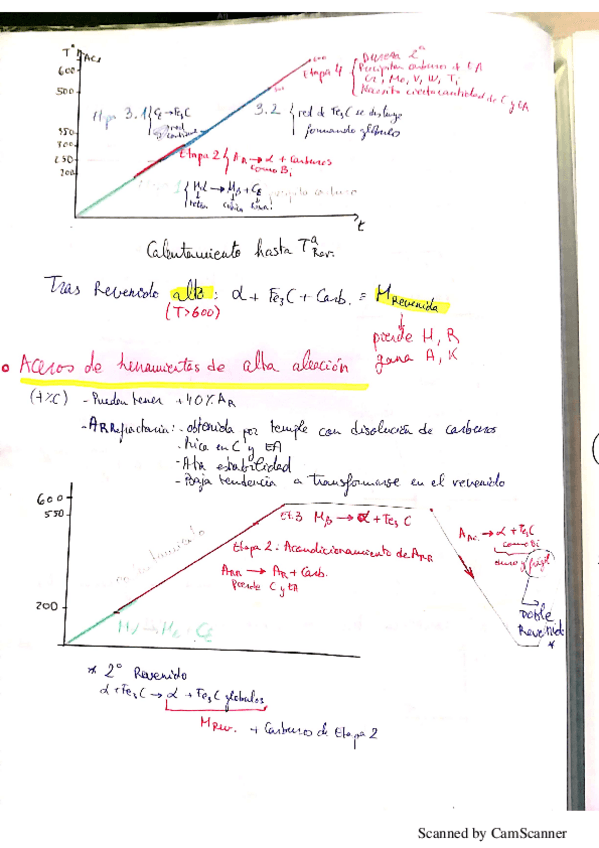 Tª Ac1
600
500
350
300
250
200
Dureza 2ª
Etapa 4 { Precipitan carburos + EA
Cr, Mo, V, W, Ti
Necesita cierta cantidad de C y EA
Etapa 3.1 { Cε → Fe3C
red
3.2 { red de Fe3C se destruye
formando glóbulos
Etapa 2 { AR → α + Carburos
como Bi
{ M → MB + Cε
t
Calentamiento hasta TªRev.
Tras Revenido alto: α + Fe3C + Carb. ≡ MRevenida
(T>600)
pierde H, R
gana A, K
Aceros de herramientas de alta aleación
(↑%C) - Pueden tener +40% AR
- ARRefractaria: - obtenida por temple con disolución de carburos
- Rica en C y EA
- Alta estabilidad
- Baja tendencia a transformarse en el revenido
600
550
200
Et.3 MB → α + Fe3C
Etapa 2: Acondicionamiento de ARR
ARR → AR + Carb.
Pierde C y EA
AAc. → α + Fe3C
como Bi
duro y frágil
Doble
Revenido
*
* 2º Revenido
α + Fe3C → α + Fe3C glóbulos
MRev. + Carburos de Etapa 2
Scanned by CamScanner